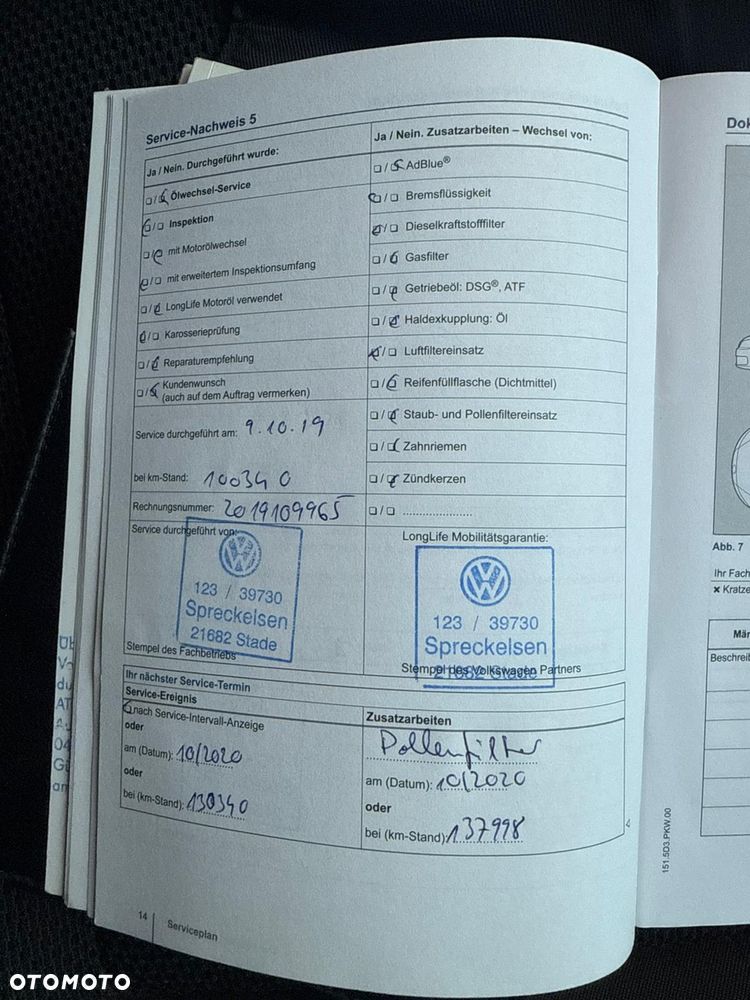 Service-Nachweis 5
Ja / Nein. Durchgeführt wurde:
□/□ Ölwechsel-Service
□/□ Inspektion
□/□ mit Motorölwechsel
□/□ mit erweitertem Inspektionsumfang
□/□ LongLife Motoröl verwendet
□/□ Karosserieprüfung
□/□ Reparaturempfehlung
□/□ Kundenwunsch
(auch auf dem Auftrag vermerken)
Service durchgeführt am: 9.10.19
bei km-Stand: 100340
Rechnungsnummer: 2019109965
Service durchgeführt von:
123 / 39730
Spreckelsen
21682 Stade
Stempel des Fachbetriebs
Ja / Nein. Zusatzarbeiten – Wechsel von:
□/□ AdBlue®
□/□ Bremsflüssigkeit
□/□ Dieselkraftstofffilter
□/□ Gasfilter
□/□ Getriebeöl: DSG®, ATF
□/□ Haldexkupplung: Öl
□/□ Luftfiltereinsatz
□/□ Reifenfüllflasche (Dichtmittel)
□/□ Staub- und Pollenfiltereinsatz
□/□ Zahnriemen
□/□ Zündkerzen
□/□ .....................
LongLife Mobilitätsgarantie:
123 / 39730
Spreckelsen
21682 Stade
Stempel des Volkswagen Partners
Ihr nächster Service-Termin
Service-Ereignis
□ nach Service-Intervall-Anzeige
oder
am (Datum): 10/2020
oder
bei (km-Stand): 130340
Zusatzarbeiten
Pollenfilter
am (Datum): 10/2020
oder
bei (km-Stand): 137998
14 | Serviceplan
151.5D3.PKW.00
Abb. 7
Ihr Fach
× Kratze
Beschreib
OTOMOTO